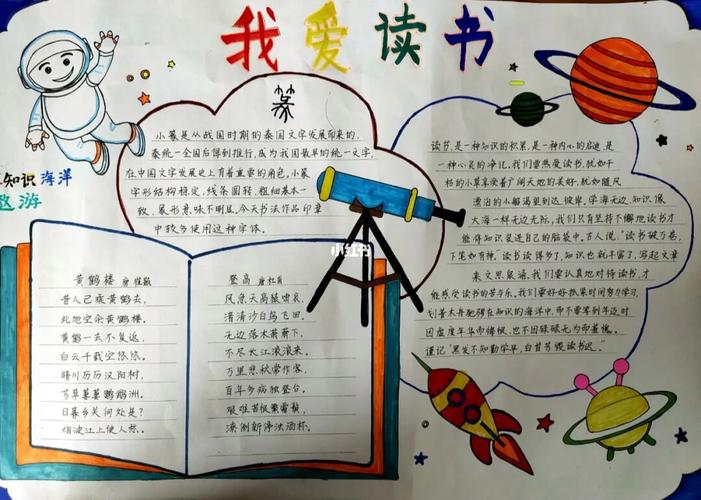 我爱读书
知识海洋
遨游
篆
小篆是从战国时期的秦国文字发展印来的,
秦统一全国后得到推行,成为我国最早的统一文字,
在中国文字发展史上有着重要的角色。小篆
字形结构稳定、线条圆转、粗细基本一
致、象形意味不明显。今天书法作品印章
中较多使用这种字体。
黄鹤楼 唐 崔颢
昔人已乘黄鹤去,
此地空余黄鹤楼。
黄鹤一去不复返,
白云千载空悠悠。
晴川历历汉阳树,
芳草萋萋鹦鹉洲。
日暮乡关何处是?
烟波江上使人愁。
登高 唐 杜甫
风急天高猿啸哀,
渚清沙白鸟飞回。
无边落木萧萧下,
不尽长江滚滚来。
万里悲秋常作客,
百年多病独登台。
艰难苦恨繁霜鬓,
潦倒新停浊酒杯。
读书,是一种知识的积累,是一种内心的启迪,是
一种心灵的净化。我们要热爱读书,就如干
枯的小草享受着广阔天地的美好,就如随风
漂泊的小船渴望到达彼岸。学海无边,知识像
大海一样无边无际。我们只有坚持不懈地读书才
能将知识装进自己的脑袋中。古人说:"读书破万卷,
下笔如有神。"读书读得多了,知识也就丰富了,写起文章
来文思泉涌。我们要认真地对待读书,才
能感受读书的苦与乐。我们要好好抓紧时间努力学习,
划着木舟驰骋在知识的海洋中,而不要等到年迈时
因虚度年华而悔恨,也不因碌碌无为而羞愧。
谨记"黑发不知勤学早,白首方悔读书迟。"
小红书